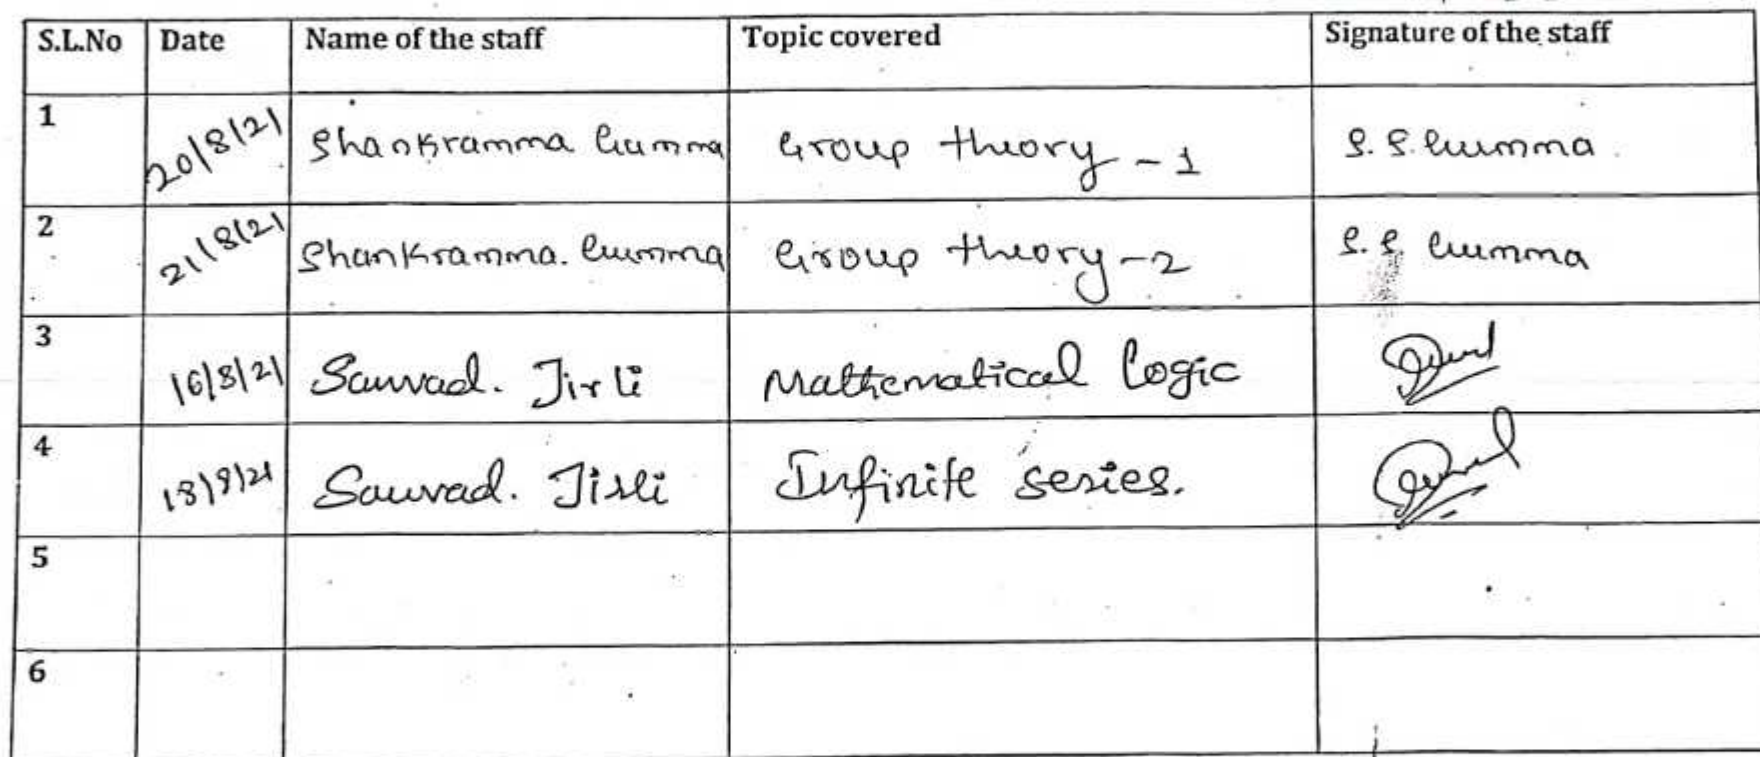 S.L.No Date Name of the staff Topic covered Signature of the staff
1 20/8/21 Shankramma Gumma Group theory - 1 S. S. Gumma
2 21/8/21 Shankramma. Gumma Group theory - 2 S. S. Gumma
3 16/8/21 Sauvad. Jirli Mathematical logic
4 18/8/21 Sauvad. Jirli Infinite series.
5
6